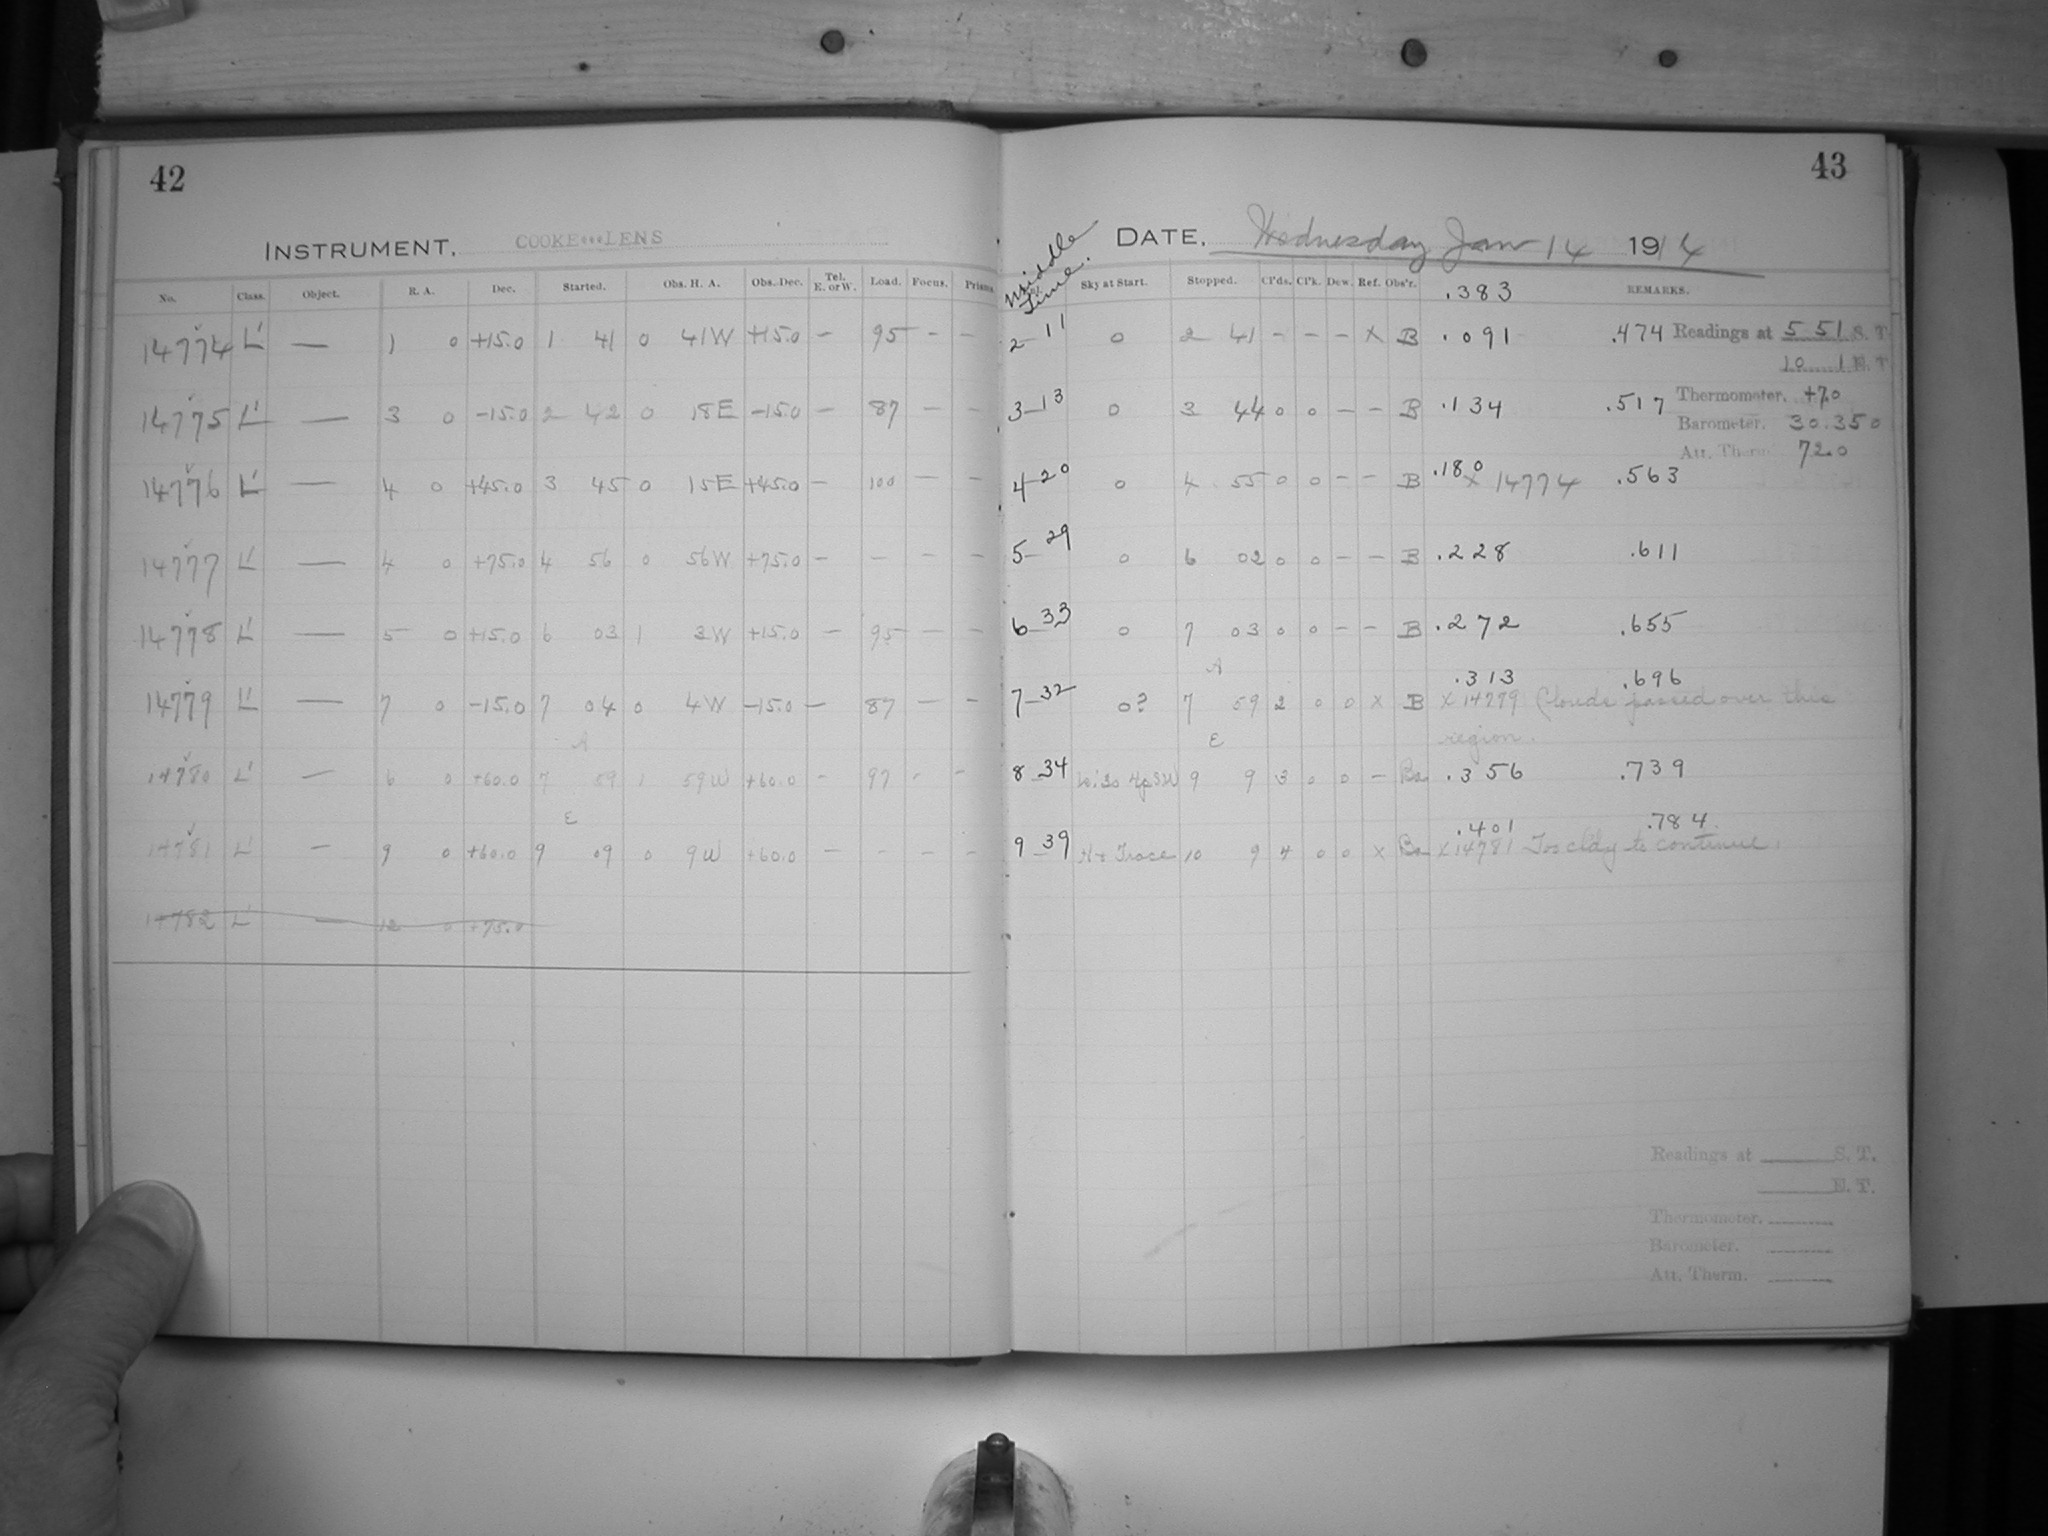 42
43
INSTRUMENT. COOKE•••LENS
Middle Time.
DATE. Wednesday Jan 14 1914
No. Class. Object. R. A. Dec. Started. Obs. H. A. Obs. Dec. Tel. E. or W. Load. Focus. Prisms. Sky at Start. Stopped. Cl'ds. Cl'k. Dew. Ref. Obs'r. .383 REMARKS.
14774 L' — 1 0 +15.0 1 41 0 41W +15.0 — 95 - - 2-11 0 2 41 - - - X B .091 .474 Readings at 5 51 S. T.
10 1 E. T.
14775 L' — 3 0 -15.0 2 42 0 18E -15.0 - 87 - - 3-13 0 3 44 0 0 - - B .134 .517 Thermometer. +7.0
Barometer. 30.350
Att. Therm. 72.0
14776 L' — 4 0 +45.0 3 45 0 15E +45.0 - 100 - - 4-20 0 4 55 0 0 - - B .180 x 14774 .563
14777 L' — 4 0 +75.0 4 56 0 56W +75.0 - - - - 5-29 0 6 02 0 0 - - B .228 .611
14778 L' — 5 0 +15.0 6 03 1 3W +15.0 - 95 - - 6-33 0 7 03 0 0 - - B .272 .655
A .313 .696
14779 L' — 7 0 -15.0 7 04 0 4W -15.0 - 87 - - 7-32 0? 7 59 2 0 0 X B X 14779 Clouds passed over this
A E region.
14780 L' — 6 0 +60.0 7 59 1 59W +60.0 - 97 - - 8-34 9 9 3 0 0 - Ba .356 .739
E .401 .784
14781 L' — 9 0 +60.0 9 09 0 9W +60.0 - - - - 9-39 H + Trace 10 9 4 0 0 X Ba X 14781 Too cldy to continue.
14782 L' — 12 0 +75.0
Readings at S. T.
E. T.
Thermometer.
Barometer.
Att. Therm.